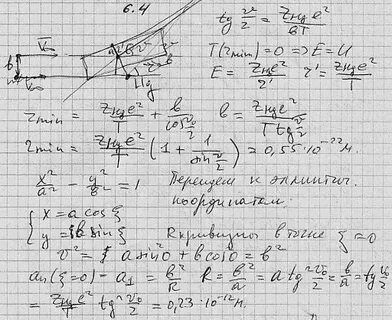 6.4
tg ν/2 = z z_яд e² / bT
T(r min) = 0 => E = U
E = z яд e² / r' r' = z яд e² / T
b v∞
v∞
r min = z яд e² / T + b / cos ν/2 b = z яд e² / T tg ν/2
r min = z яд e² / T (1 + 1 / sin ν/2) = 0,55·10⁻¹² м.
x²/a² - y²/b² = 1 Перейдем к эллиптич.
координатам.
{ x = a cos ξ
y = b sin ξ R кривизны в точке ξ = 0
v² = { a sin² 0 + b cos 0 = b²
an(ξ=0) - a₁ = b²/R R = b²/a = a tg² ν₀/2 = b/a = tg ν₀/2
= z яд e² / T tg² ν₀/2 = 0,23·10⁻¹² м.